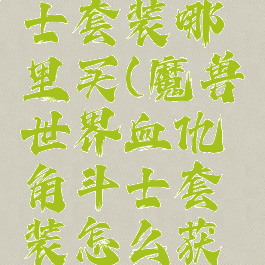 士套装哪
里买(魔兽
世界血吼
角斗士套
装怎么获